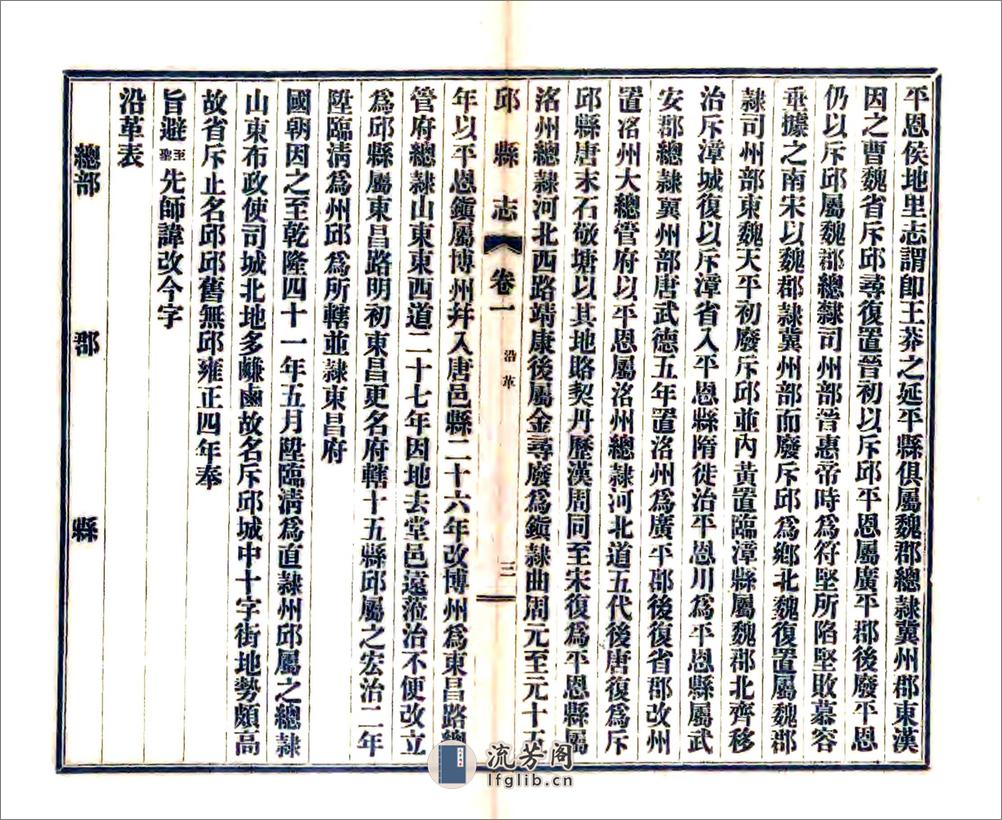 平恩侯地里志謂卽王莽之延平縣俱屬魏郡總隷冀州郡東漢
因之曹魏省斥邱尋復置晉初以斥邱平恩屬廣平郡後廢平恩
仍以斥邱屬魏郡總隷司州部晉惠帝時爲符堅所陷堅敗慕容
垂據之南宋以魏郡隷冀州部而廢斥邱爲鄉北魏復置屬魏郡
隷司州部東魏天平初廢斥邱並內黃置臨漳縣屬魏郡北齊移
治斥漳城復以斥漳省入平恩縣隋徙治平恩川爲平恩縣屬武
安郡總隷冀州部唐武德五年置洛州爲廣平郡後復省郡改州
置洺州大總管府以平恩屬洛州總隷河北道五代後唐復爲斥
邱縣唐末石敬塘以其地賂契丹歷漢周同至宋復爲平恩縣屬
洛州總隷河北西路靖康後屬金尋廢爲鎭隷曲周元至元十五
邱縣志 卷一 沿革 三
年以平恩鎭屬博州幷入唐邑縣二十六年改博州爲東昌路總
管府總隷山東東西道二十七年因地去堂邑遠蒞治不便改立
爲邱縣屬東昌路明初東昌更名府轄十五縣邱屬之宏治二年
陞臨淸爲州邱爲所轄並隷東昌府
國朝因之至乾隆四十一年五月陞臨淸爲直隷州邱屬之總隷
山東布政使司城北地多鹻鹵故名斥邱城中十字街地勢頗高
故省斥止名邱邱舊無邱雍正四年奉
旨避至聖先師諱改今字
沿革表
總部 郡 縣
流芳阁
lfglib.cn